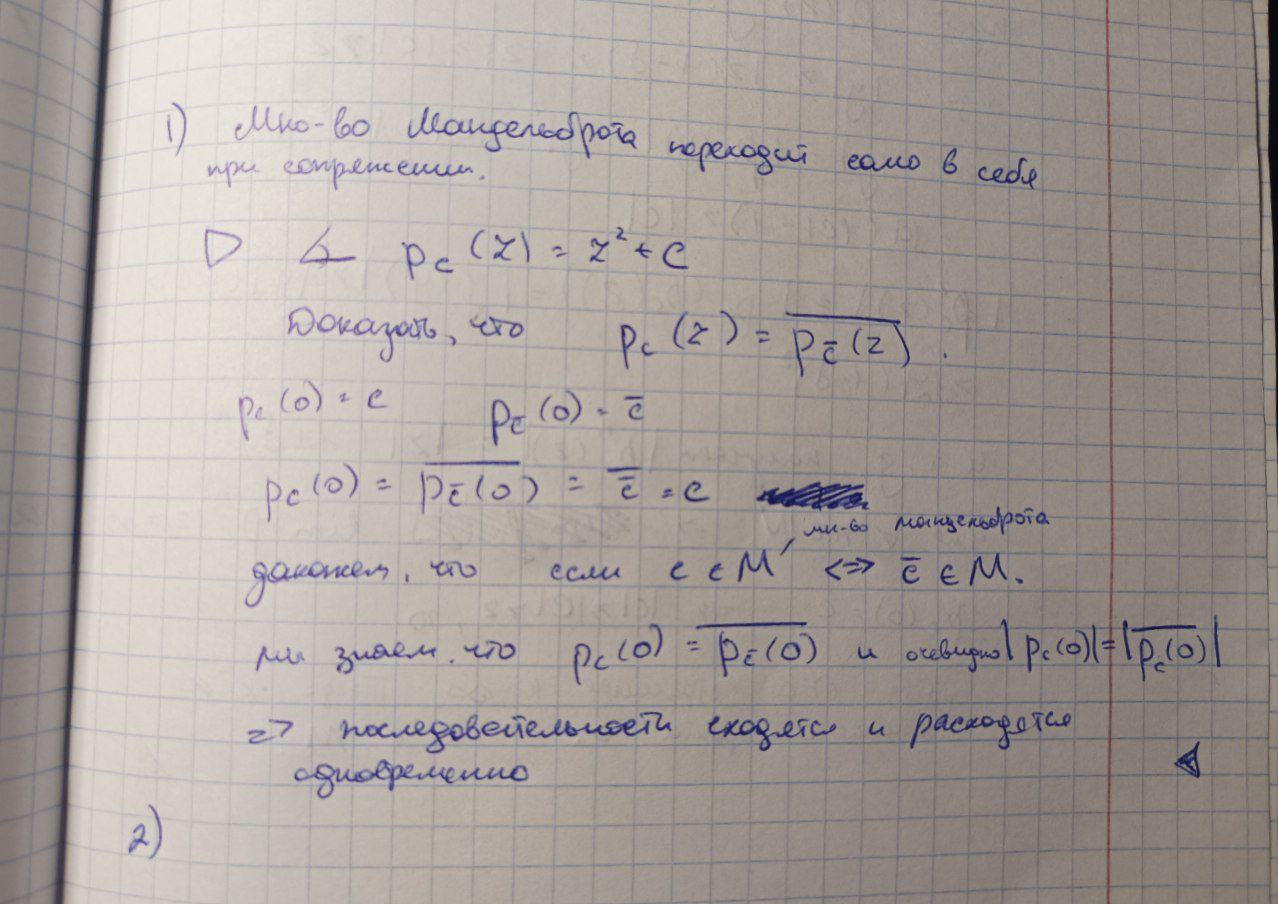 1) Мно-во Мандельброта переходит само в себя
при сопряжении.
▷ ∠ p_c (z) = z² + c
Доказать, что p_c (z) = \overline{p_{\bar{c}} (z)}.
p_c (0) = c p_{\bar{c}} (0) = \bar{c}
p_c (0) = \overline{p_{\bar{c}} (0)} = \bar{\bar{c}} = c
мн-во мандельброта
докажем, что если c ∈ M <=> \bar{c} ∈ M.
мы знаем, что p_c (0) = \overline{p_{\bar{c}} (0)} и очевидно |p_c (0)| = |\overline{p_c (0)}|
=> последовательности сходятся и расходятся
одновременно ◁
2)